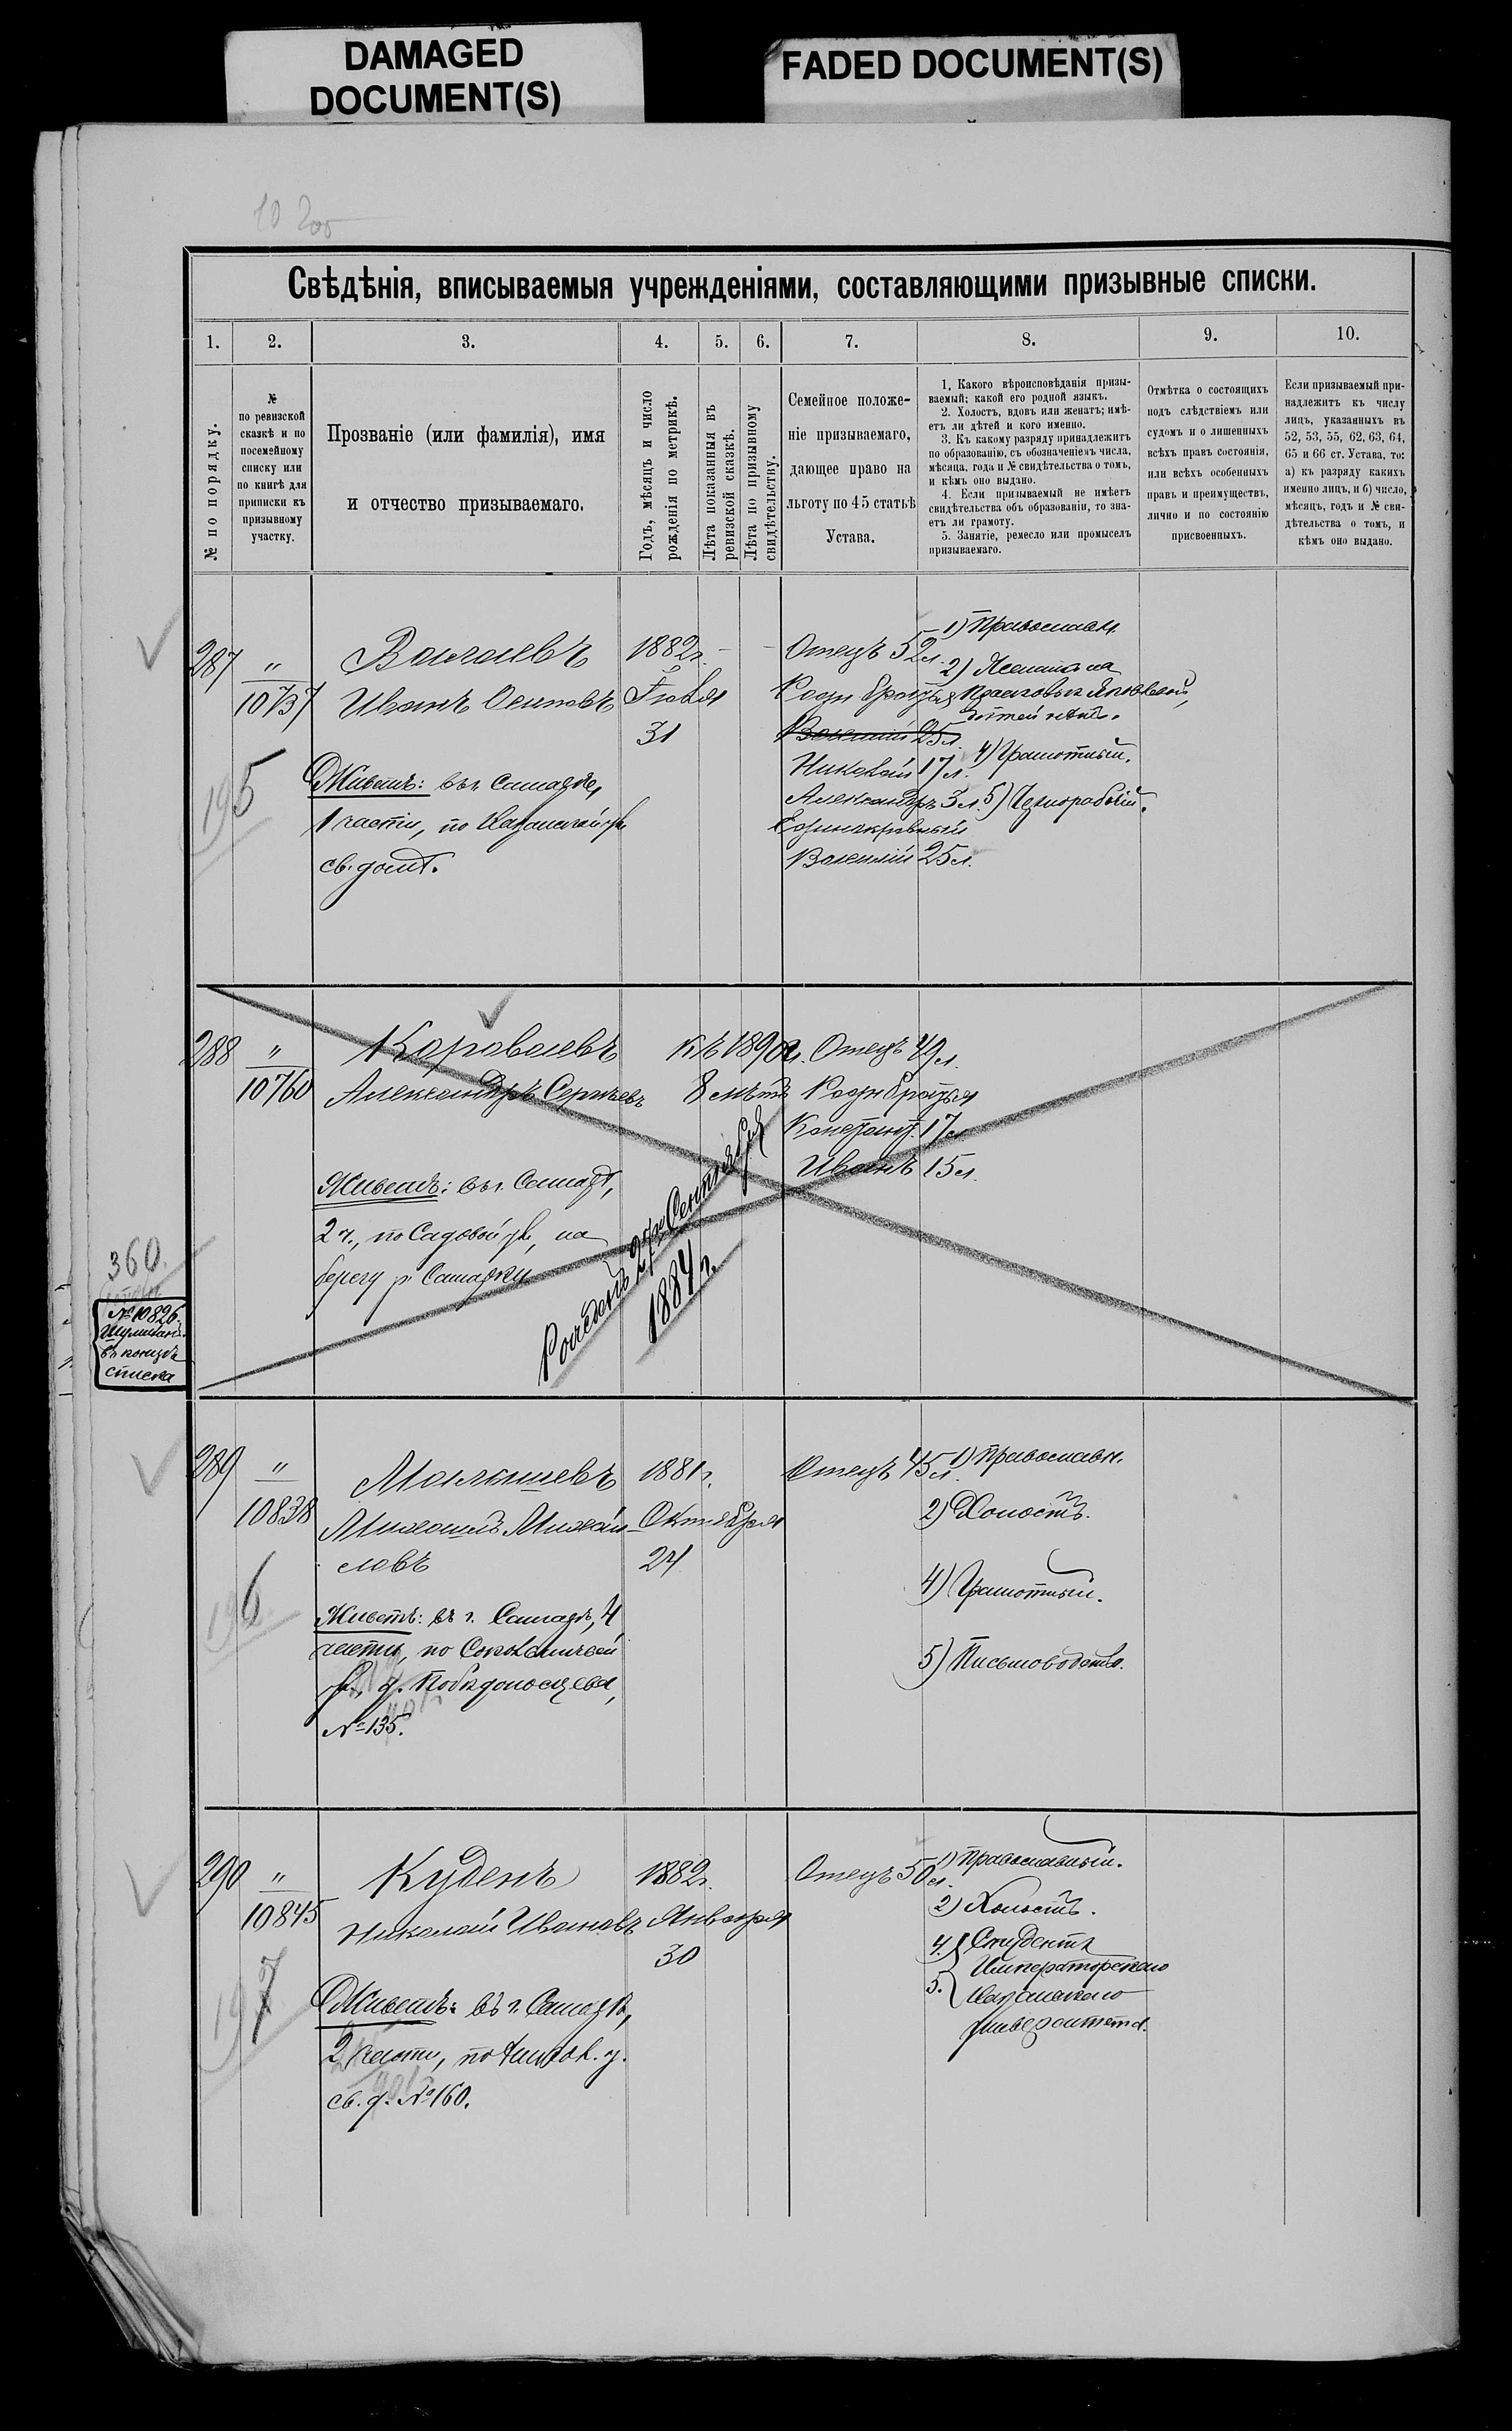 DAMAGED
DOCUMENT(S)
FADED DOCUMENT(S)
Свѣдѣнія, вписываемыя учрежденіями, составляющими призывные списки.
1. 2. 3. 4. 5. 6. 7. 8. 9. 10.
№ по порядку.
№
по ревизской
сказкѣ и по
посемейному
списку или
по книгѣ для
приписки къ
призывному
участку.
Прозваніе (или фамилія), имя
и отчество призываемаго.
Годъ, мѣсяцъ и число
рожденія по метрикѣ.
Лѣта показанныя въ
ревизской сказкѣ.
Лѣта по призывному
свидѣтельству.
Семейное положе-
ніе призываемаго,
дающее право на
льготу по 45 статьѣ
Устава.
1. Какого вѣроисповѣданія призы-
ваемый; какой его родной языкъ.
2. Холостъ, вдовъ или женатъ; имѣ-
етъ ли дѣтей и кого именно.
3. Къ какому разряду принадлежитъ
по образованію, съ обозначеніемъ числа,
мѣсяца, года и № свидѣтельства о томъ,
и кѣмъ оно выдано.
4. Если призываемый не имѣетъ
свидѣтельства объ образованіи, то зна-
етъ ли грамоту.
5. Занятіе, ремесло или промыселъ
призываемаго.
Отмѣтка о состоящихъ
подъ слѣдствіемъ или
судомъ и о лишенныхъ
всѣхъ правъ состоянія,
или всѣхъ особенныхъ
правъ и преимуществъ,
лично и по состоянію
присвоенныхъ.
Если призываемый при-
надлежитъ къ числу
лицъ, указанныхъ въ
52, 53, 55, 62, 63, 64,
65 и 66 ст. Устава, то:
а) къ разряду какихъ
именно лицъ, и б) число,
мѣсяцъ, годъ и № сви-
дѣтельства о томъ, и
кѣмъ оно выдано.
287 "
10737
195
Иванъ Осиповъ
Живетъ: въ г. Самарѣ,
1 части, по Казанской ул.
св. домъ.
1882г.
31
Отецъ 52л.
Родн братья
Василий 25л.
Николай 17л.
Александръ 3л.
Единокровный
Василій 25л.
1) Православн.
2) Женатъ на
дѣтей нѣтъ.
4) Грамотный.
5) Чернорабочій.
288 "
10760
Короваевъ
Александръ Сергѣевъ
Живетъ: въ г. Самарѣ,
2 ч., по Садовой ул., на
берегу р. Самарки
къ 1890г.
8 лѣтъ
Рожденъ Сентября
1884 г.
Отецъ 49л.
Родн братья
Констант. 17л.
Иванъ 15л.
360.
№ 10826.
въ концѣ
списка
289 "
10838
196
Малышевъ
Михаилъ Михай-
ловъ
Живетъ: въ г. Самарѣ, 4
части, по Соколничьей
ул., д. Побѣдоносцева,
№ 135.
1881г.
Октября
24
Отецъ 45л.
1) Православн.
2) Холостъ.
4) Грамотный.
5) Письмоводств.
290 "
10845
197
Куденъ
Николай Ивановъ
Живетъ: въ г. Самарѣ,
2 части,
св. д. № 160.
1882г.
Января
30
Отецъ 50л.
1) Православный.
2) Холостъ.
4. Студентъ
5. Императорскаго
Казанскаго
университета.